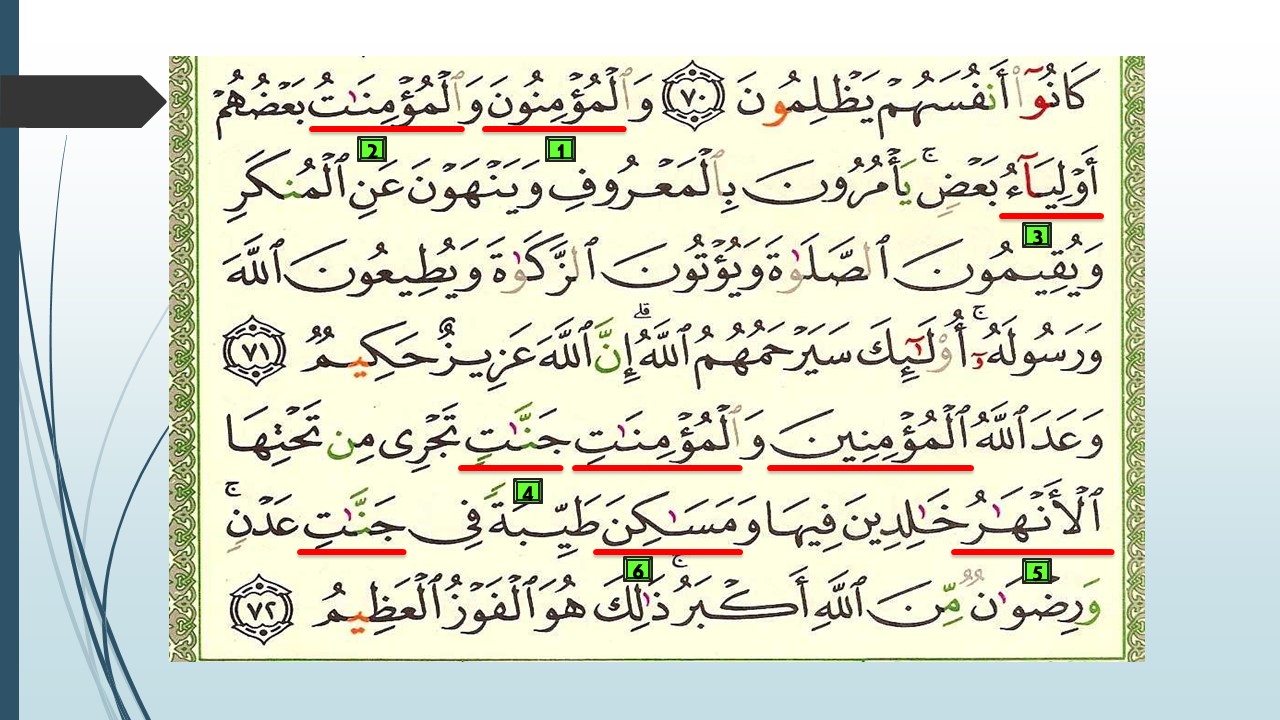 كَانُوٓا۟ أَنفُسَهُمْ يَظْلِمُونَ ٧٠ وَٱلْمُؤْمِنُونَ وَٱلْمُؤْمِنَٰتُ بَعْضُهُمْ
2 1
أَوْلِيَآءُ بَعْضٍ ۚ يَأْمُرُونَ بِٱلْمَعْرُوفِ وَيَنْهَوْنَ عَنِ ٱلْمُنكَرِ
3
وَيُقِيمُونَ ٱلصَّلَوٰةَ وَيُؤْتُونَ ٱلزَّكَوٰةَ وَيُطِيعُونَ ٱللَّهَ
وَرَسُولَهُۥٓ ۚ أُو۟لَٰٓئِكَ سَيَرْحَمُهُمُ ٱللَّهُ ۗ إِنَّ ٱللَّهَ عَزِيزٌ حَكِيمٌ ٧١
وَعَدَ ٱللَّهُ ٱلْمُؤْمِنِينَ وَٱلْمُؤْمِنَٰتِ جَنَّٰتٍ تَجْرِى مِن تَحْتِهَا
4
ٱلْأَنْهَٰرُ خَٰلِدِينَ فِيهَا وَمَسَٰكِنَ طَيِّبَةً فِى جَنَّٰتِ عَدْنٍ ۚ
6 5
وَرِضْوَٰنٌ مِّنَ ٱللَّهِ أَكْبَرُ ۚ ذَٰلِكَ هُوَ ٱلْفَوْزُ ٱلْعَظِيمُ ٧٢